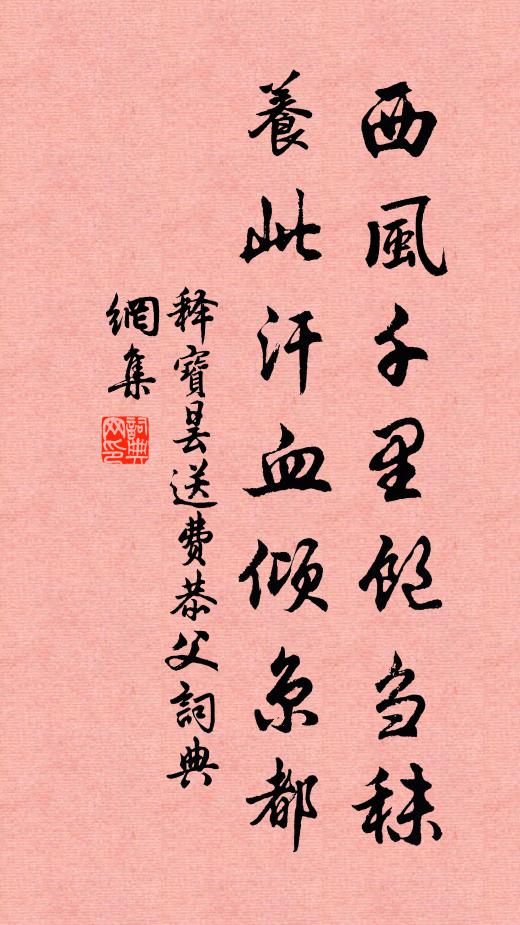 西風千里飽芻秣
養此汗血傾京都
释寶曇送費恭父詞典
網集
詞典網印